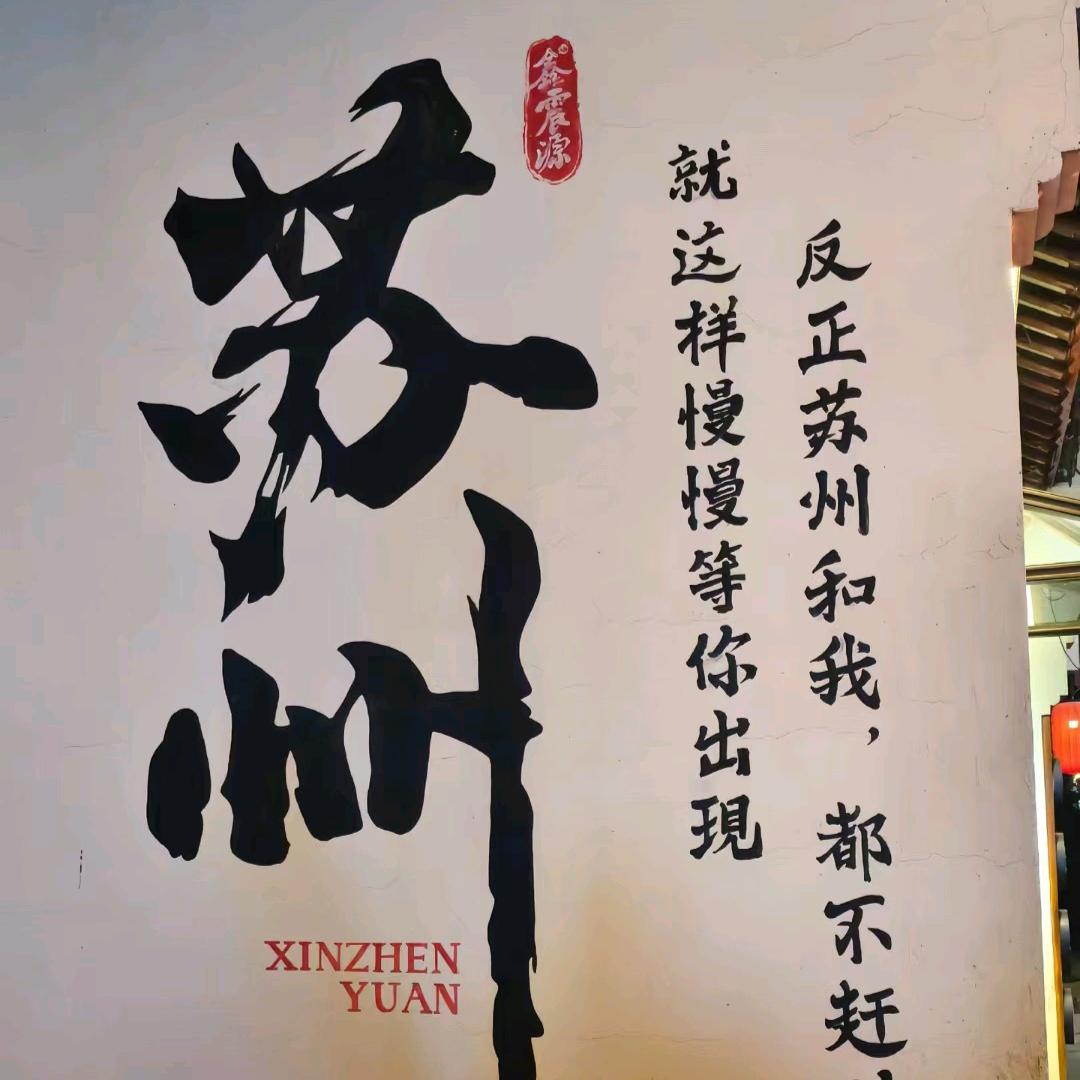 反正苏州和我，都不赶
就这样慢慢等你出現
鑫震源
苏州
XINZHEN
YUAN